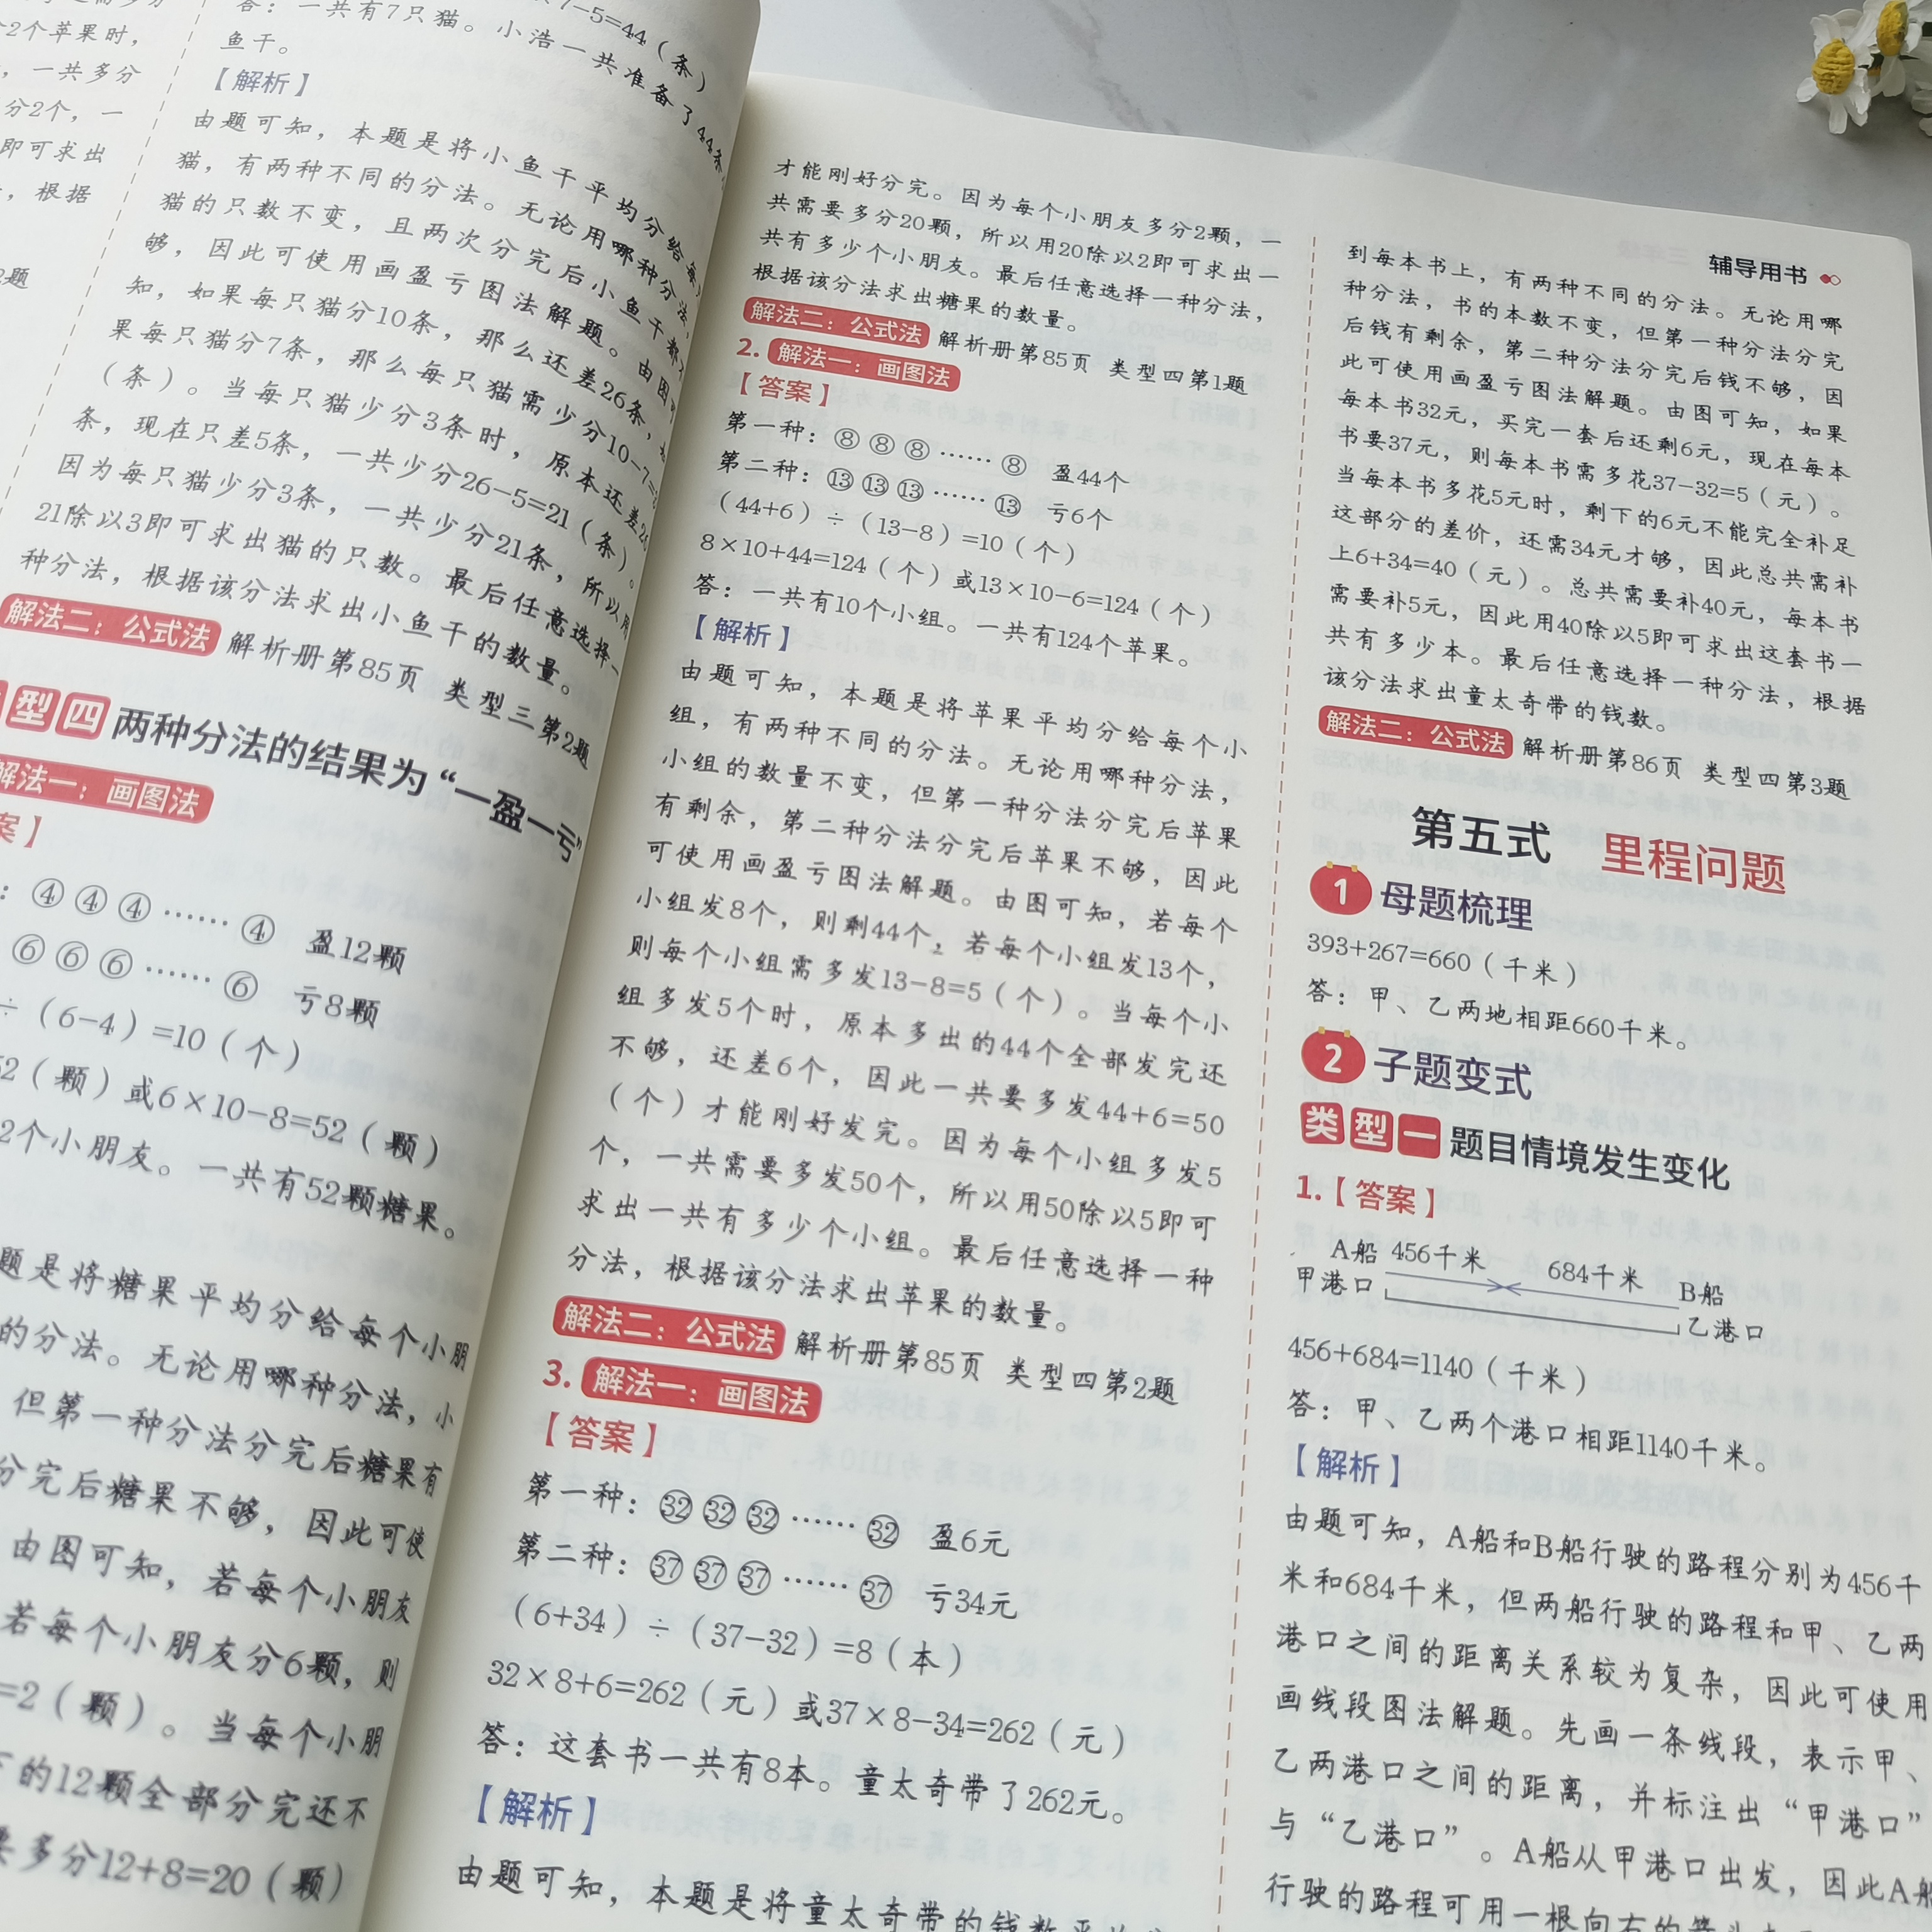 2个苹果时，
，一共多分
分2个，一
即可求出
，根据
题
7-5=44（条）
答：一共有7只猫。小浩一共准备了44条
鱼干。
【解析】
由题可知，本题是将小鱼干平均分给每
猫，有两种不同的分法。无论用哪种分法，
猫的只数不变，且两次分完后小鱼干都
够，因此可使用画盈亏图法解题。由图
知，如果每只猫分10条，那么还差26条，
果每只猫分7条，那么每只猫需少分10-7=
（条）。当每只猫少分3条时，原本还差26
条，现在只差5条，一共少分26-5=21（条）。
因为每只猫少分3条，一共少分21条，所以用
21除以3即可求出猫的只数。最后任意选择一
种分法，根据该分法求出小鱼干的数量。
解法二：公式法 解析册第85页 类型三第2题
型四 两种分法的结果为“一盈一亏”
解法一：画图法
案】
：④ ④ ④ …… ④ 盈12颗
⑥ ⑥ ⑥ …… ⑥ 亏8颗
÷（6-4）=10（个）
2（颗）或6×10-8=52（颗）
个小朋友。一共有52颗糖果。
题是将糖果平均分给每个小朋
的分法。无论用哪种分法，小
但第一种分法分完后糖果有
分完后糖果不够，因此可使
由图可知，若每个小朋友
若每个小朋友分6颗，则
=2（颗）。当每个小朋
的12颗全部分完还不
多分12+8=20（颗）
辅导用书
才能刚好分完。因为每个小朋友多分2颗，一
共需要多分20颗，所以用20除以2即可求出一
共有多少个小朋友。最后任意选择一种分法，
根据该分法求出糖果的数量。
解法二：公式法 解析册第85页 类型四第1题
2. 解法一：画图法
【答案】
第一种：⑧ ⑧ ⑧ …… ⑧ 盈44个
第二种：⑬ ⑬ ⑬ …… ⑬ 亏6个
（44+6）÷（13-8）=10（个）
8×10+44=124（个）或13×10-6=124（个）
答：一共有10个小组。一共有124个苹果。
【解析】
由题可知，本题是将苹果平均分给每个小
组，有两种不同的分法。无论用哪种分法，
小组的数量不变，但第一种分法分完后苹果
有剩余，第二种分法分完后苹果不够，因此
可使用画盈亏图法解题。由图可知，若每个
小组发8个，则剩44个，若每个小组发13个，
则每个小组需多发13-8=5（个）。当每个小
组多发5个时，原本多出的44个全部发完还
不够，还差6个，因此一共要多发44+6=50
（个）才能刚好发完。因为每个小组多发5
个，一共需要多发50个，所以用50除以5即可
求出一共有多少个小组。最后任意选择一种
分法，根据该分法求出苹果的数量。
解法二：公式法 解析册第85页 类型四第2题
3. 解法一：画图法
【答案】
第一种：㉜ ㉜ ㉜ …… ㉜ 盈6元
第二种：㊲ ㊲ ㊲ …… ㊲ 亏34元
（6+34）÷（37-32）=8（本）
32×8+6=262（元）或37×8-34=262（元）
答：这套书一共有8本。童太奇带了262元。
【解析】
由题可知，本题是将童太奇带的钱数平均
到每本书上，有两种不同的分法。无论用哪
种分法，书的本数不变，但第一种分法分完
后钱有剩余，第二种分法分完后钱不够，因
此可使用画盈亏图法解题。由图可知，如果
每本书32元，买完一套后还剩6元，现在每本
书要37元，则每本书需多花37-32=5（元）。
当每本书多花5元时，剩下的6元不能完全补足
这部分的差价，还需34元才够，因此总共需补
上6+34=40（元）。总共需要补40元，每本书
需要补5元，因此用40除以5即可求出这套书一
共有多少本。最后任意选择一种分法，根据
该分法求出童太奇带的钱数。
解法二：公式法 解析册第86页 类型四第3题
第五式 里程问题
1 母题梳理
393+267=660（千米）
答：甲、乙两地相距660千米。
2 子题变式
类型一 题目情境发生变化
1.【答案】
A船 456千米 684千米 B船
甲港口 乙港口
456+684=1140（千米）
答：甲、乙两个港口相距1140千米。
【解析】
由题可知，A船和B船行驶的路程分别为456千
米和684千米，但两船行驶的路程和甲、乙两
港口之间的距离关系较为复杂，因此可使用
画线段图法解题。先画一条线段，表示甲、
乙两港口之间的距离，并标注出“甲港口”
与“乙港口”。A船从甲港口出发，因此A船
行驶的路程可用一根向右的箭头